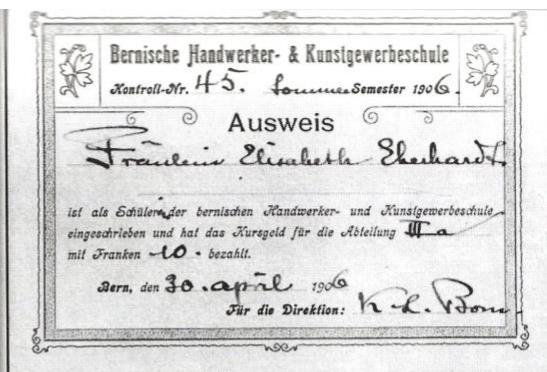 Bernische Handwerker- & Kunstgewerbeschule
Kontroll-Nr. 45. Sommer Semester 1906.
Ausweis
Fräulein Elisabeth Eberhardt.
ist als Schülerin der bernischen Handwerker- und Kunstgewerbeschule
eingeschrieben und hat das Kursgeld für die Abteilung III a
mit Franken 10. bezahlt.
Bern, den 30. april 1906
Für die Direktion: